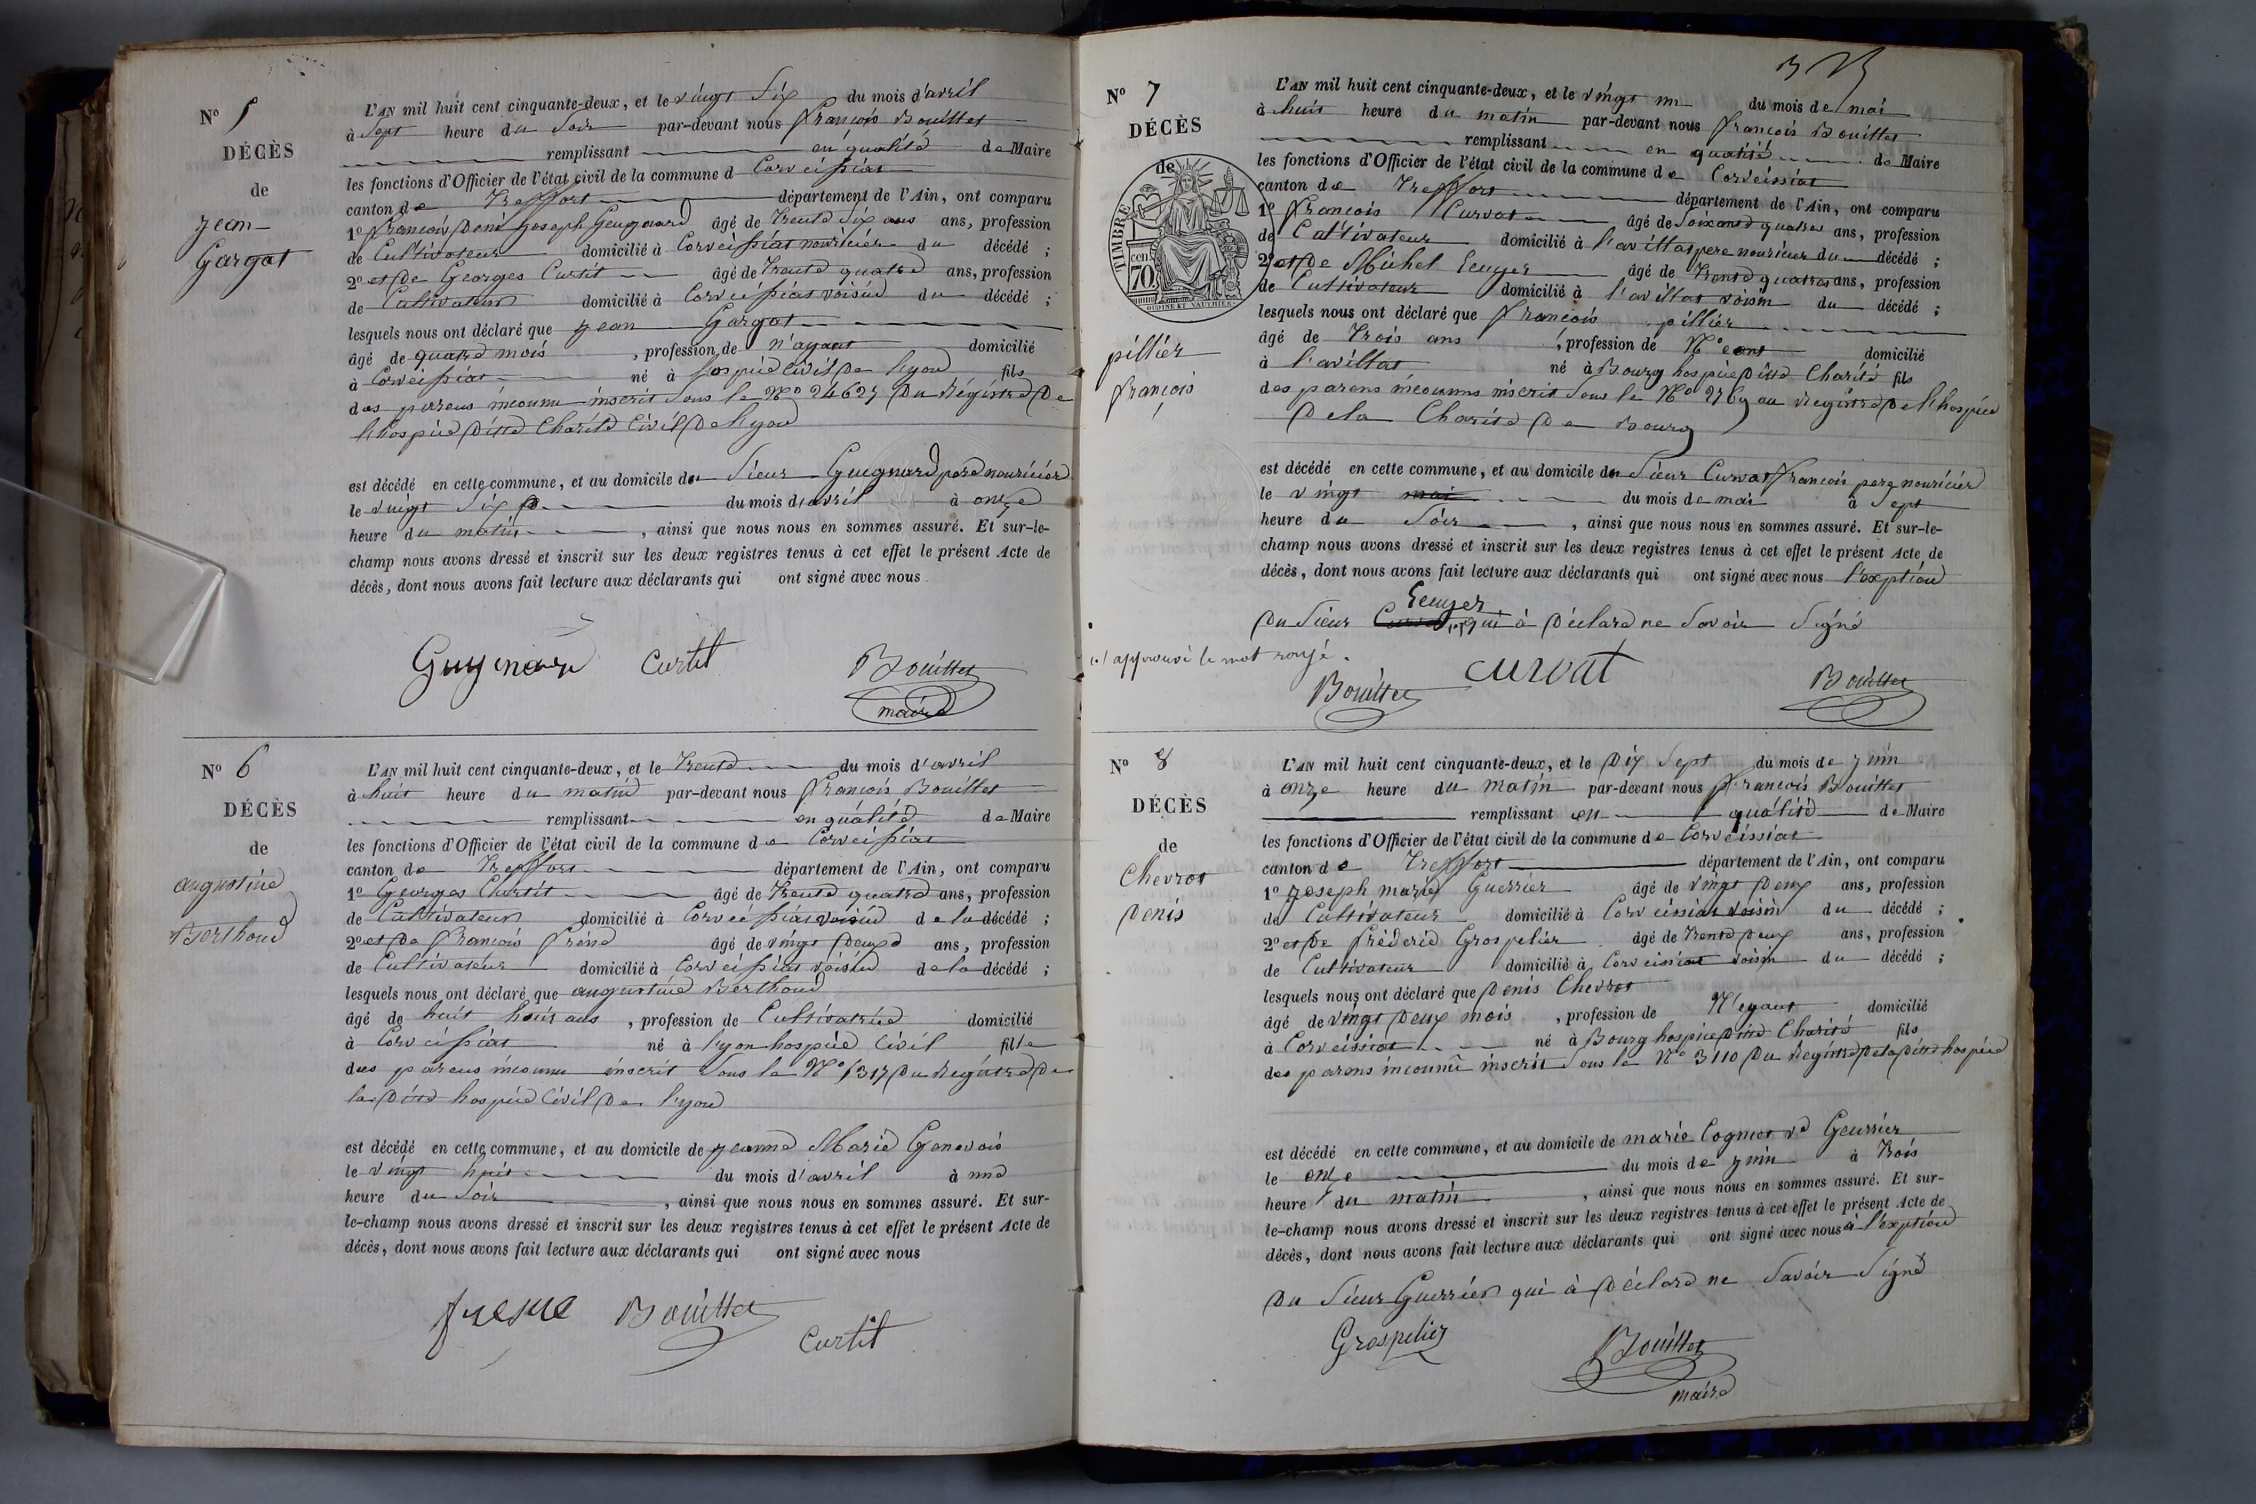 N° 5
DÉCÈS
de
jean
Gargat
L'AN mil huit cent cinquante-deux, et le vingt Six du mois d'avril
à Sept heure du Soir par-devant nous françois Bouillet
remplissant en qualité de Maire
les fonctions d'Officier de l'état civil de la commune d Corveissiat
canton de Treffort département de l'Ain, ont comparu
1° françois Joseph âgé de Trente Six ans ans, profession
de Cultivateur domicilié à Corveissiat nouricier du décédé ;
2° et de Georges Curtit âgé de Trente quatre ans, profession
de Cultivateur domicilié à Corveissiat voisin du décédé ;
lesquels nous ont déclaré que jean Gargat
âgé de quatre mois , profession de n'ayant domicilié
à Corveissiat né à hospice Civil De lyon fils
des parens inconnu inscrit Sous le N° 24627 Du Régistre De
lhospice Ditte Charité Civil De lyon
est décédé en cette commune, et au domicile du Sieur Guygnard pere nouricier
le vingt Six du mois d'avril à onze
heure du matin , ainsi que nous nous en sommes assuré. Et sur-le-
champ nous avons dressé et inscrit sur les deux registres tenus à cet effet le présent Acte de
décès, dont nous avons fait lecture aux déclarants qui ont signé avec nous
Guygnard Curtit Bouillet
maire
N° 6
DÉCÈS
de
augustine
Berthoud
L'AN mil huit cent cinquante-deux, et le Trente du mois d'avril
à huit heure du matin par-devant nous françois Bouillet
remplissant en qualité de Maire
les fonctions d'Officier de l'état civil de la commune de Corveissiat
canton de Treffort département de l'Ain, ont comparu
1° Georges Curtit âgé de Trente quatre ans, profession
de Cultivateur domicilié à Corveissiat voisin de la décédé ;
2° et De françois frene âgé de vingt Deux ans, profession
de Cultivateur domicilié à Corveissiat voisin de la décédé ;
lesquels nous ont déclaré que augustine Berthoud
âgé de huit ans , profession de Cultivatrice domicilié
à Corveissiat né à lyon hospice Civil fille
des parens inconnu inscrit Sous le N° 1317 Du Régistre De
la Ditte hospice Civil De lyon
est décédé en cette commune, et au domicile de jeanne Marie Genevois
le vingt huit du mois d'avril à une
heure du Soir , ainsi que nous nous en sommes assuré. Et sur-
le-champ nous avons dressé et inscrit sur les deux registres tenus à cet effet le présent Acte de
décès, dont nous avons fait lecture aux déclarants qui ont signé avec nous
frene Bouillet
Curtit
N° 7
DÉCÈS
de
TIMBRE
cen
70
OUDINE ET VAUTHIER
pillier
françois
L'AN mil huit cent cinquante-deux, et le vingt un du mois de mai
à huit heure du matin par-devant nous françois Bouillet
remplissant en qualité de Maire
les fonctions d'Officier de l'état civil de la commune de Corveissiat
canton de Treffort département de l'Ain, ont comparu
1° françois Curvat âgé de Soixante quatre ans, profession
de Cultivateur domicilié à l'avillat pere nouricier du décédé ;
2° et De Michel Ecuyer âgé de Trente quatre ans, profession
de Cultivateur domicilié à l'avillat voisin du décédé ;
lesquels nous ont déclaré que françois pillier
âgé de Trois ans , profession de domicilié
à l'avillat né à Bourg hospice Ditte Charité fils
des parens inconnus inscrit Sous le N° 2769 au Régistre De lhospice
De la Charité De Bourg
est décédé en cette commune, et au domicile du Sieur Curvat françois pere nouricier
le vingt mai du mois de mai à Sept
heure du Soir , ainsi que nous nous en sommes assuré. Et sur-le-
champ nous avons dressé et inscrit sur les deux registres tenus à cet effet le présent Acte de
décès, dont nous avons fait lecture aux déclarants qui ont signé avec nous l'exption
Ecuyer
Du Sieur Curvat qui à Déclaré ne Savoir Signé
approuvé le mot rayé.
Bouillet curvat Bouillet
N° 8
DÉCÈS
de
Chevrot
Denis
L'AN mil huit cent cinquante-deux, et le Dix Sept du mois de juin
à onze heure du matin par-devant nous françois Bouillet
remplissant en qualité de Maire
les fonctions d'Officier de l'état civil de la commune de Corveissiat
canton de Treffort département de l'Ain, ont comparu
1° joseph marie Guerrier âgé de vingt Deux ans, profession
de Cultivateur domicilié à Corveissiat voisin du décédé ;
2° et De fréderic Grospelier âgé de Trente Deux ans, profession
de Cultivateur domicilié à Corveissiat voisin du décédé ;
lesquels nous ont déclaré que Denis Chevrot
âgé de vingt Deux mois , profession de N'eyant domicilié
à Corveissiat né à Bourg hospice Ditte Charité fils
des parens inconnu inscrit Sous le N° 3110 Du Régistre De la Ditte hospice
est décédé en cette commune, et au domicile de marie Cognet ve Geurrier
le onze du mois de juin à Trois
heure du matin , ainsi que nous nous en sommes assuré. Et sur-
le-champ nous avons dressé et inscrit sur les deux registres tenus à cet effet le présent Acte de
décès, dont nous avons fait lecture aux déclarants qui ont signé avec nous à l'exption
Du Sieur Guerrier qui à Déclaré ne Savoir Signé
Grospelier Bouillet
maire